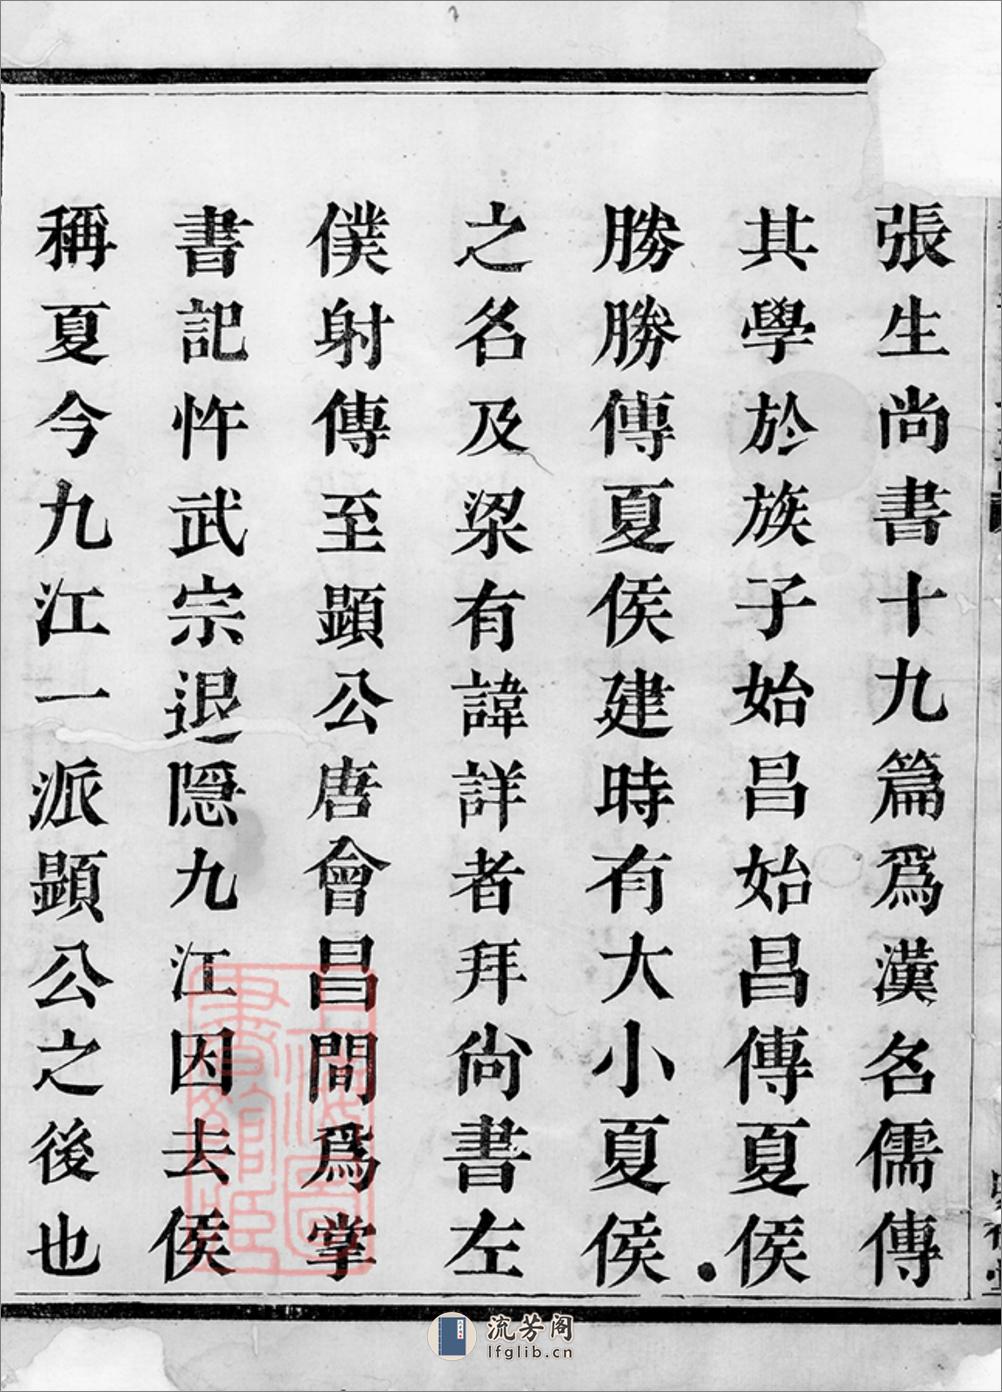 張生尚書十九篇爲漢名儒傳
其學於族子始昌始昌傳夏侯
勝勝傳夏侯建時有大小夏侯
之名及梁有諱詳者拜尙書左
僕射傳至顕公唐會昌間爲掌
書記忤武宗退隠九江因去侯
稱夏今九江一派顕公之後也
上海圖
書館藏
流芳阁
lfglib.cn